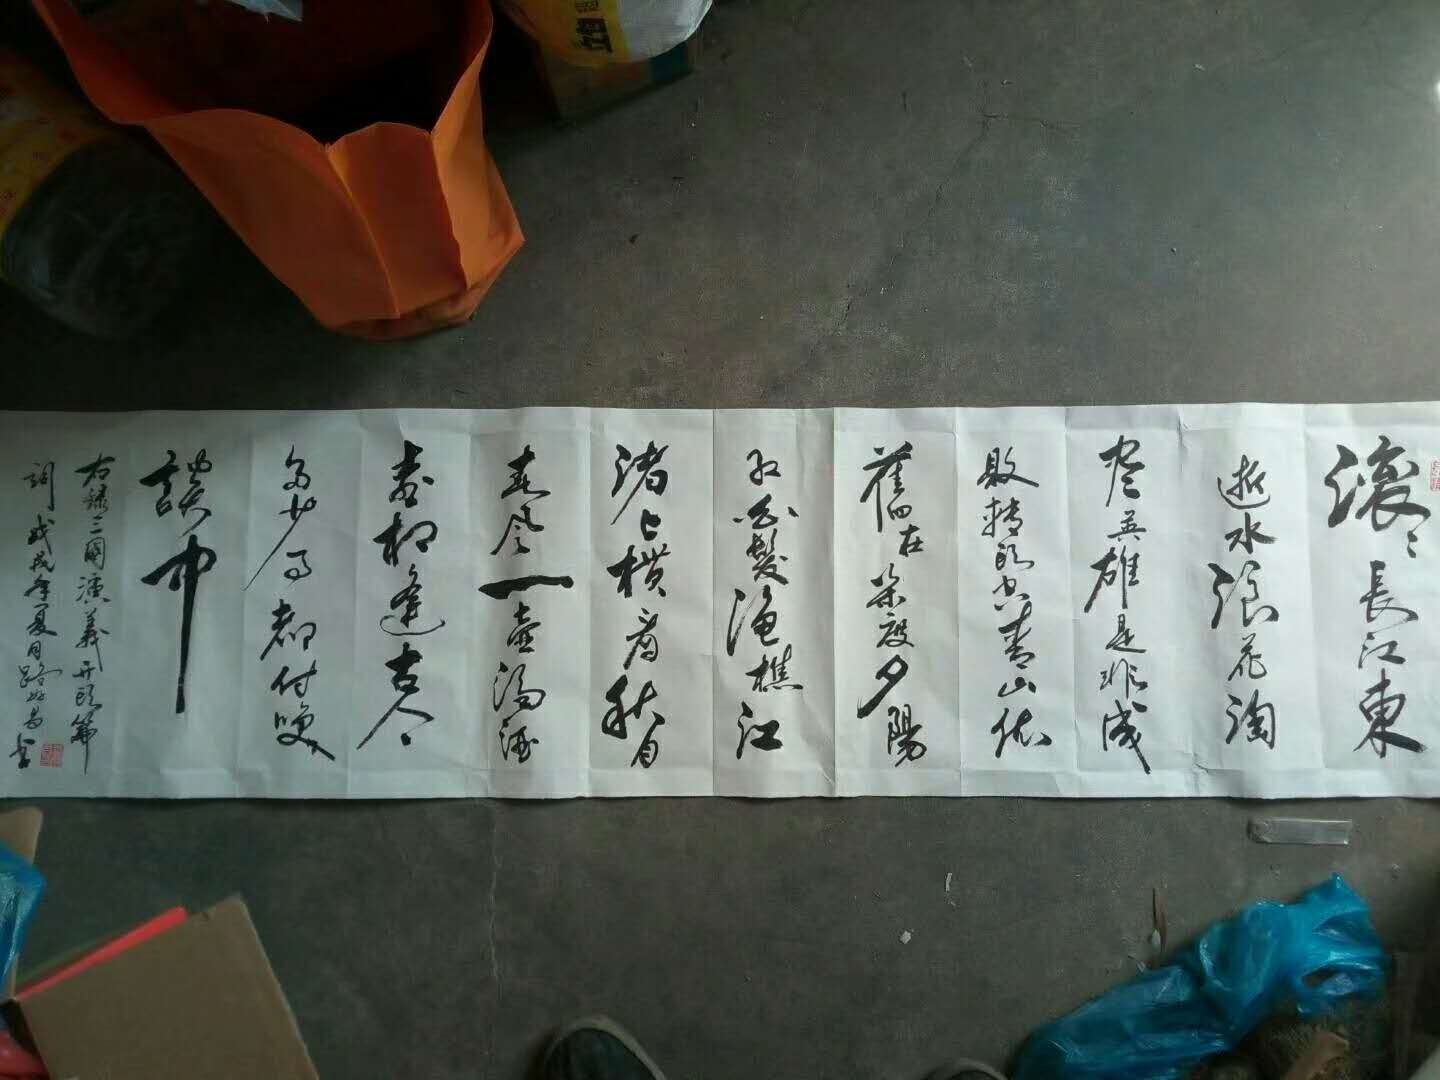 滚〻長江東
逝水浪花淘
尽英雄是非成
敗轉頭空青山依
舊在几度夕陽
红白髮漁樵江
渚上慣看秋月
春風一壺濁酒
喜相逢古今〻
多少事都付笑
談中
右録三國演義开頭篇
詞戊戌年夏月